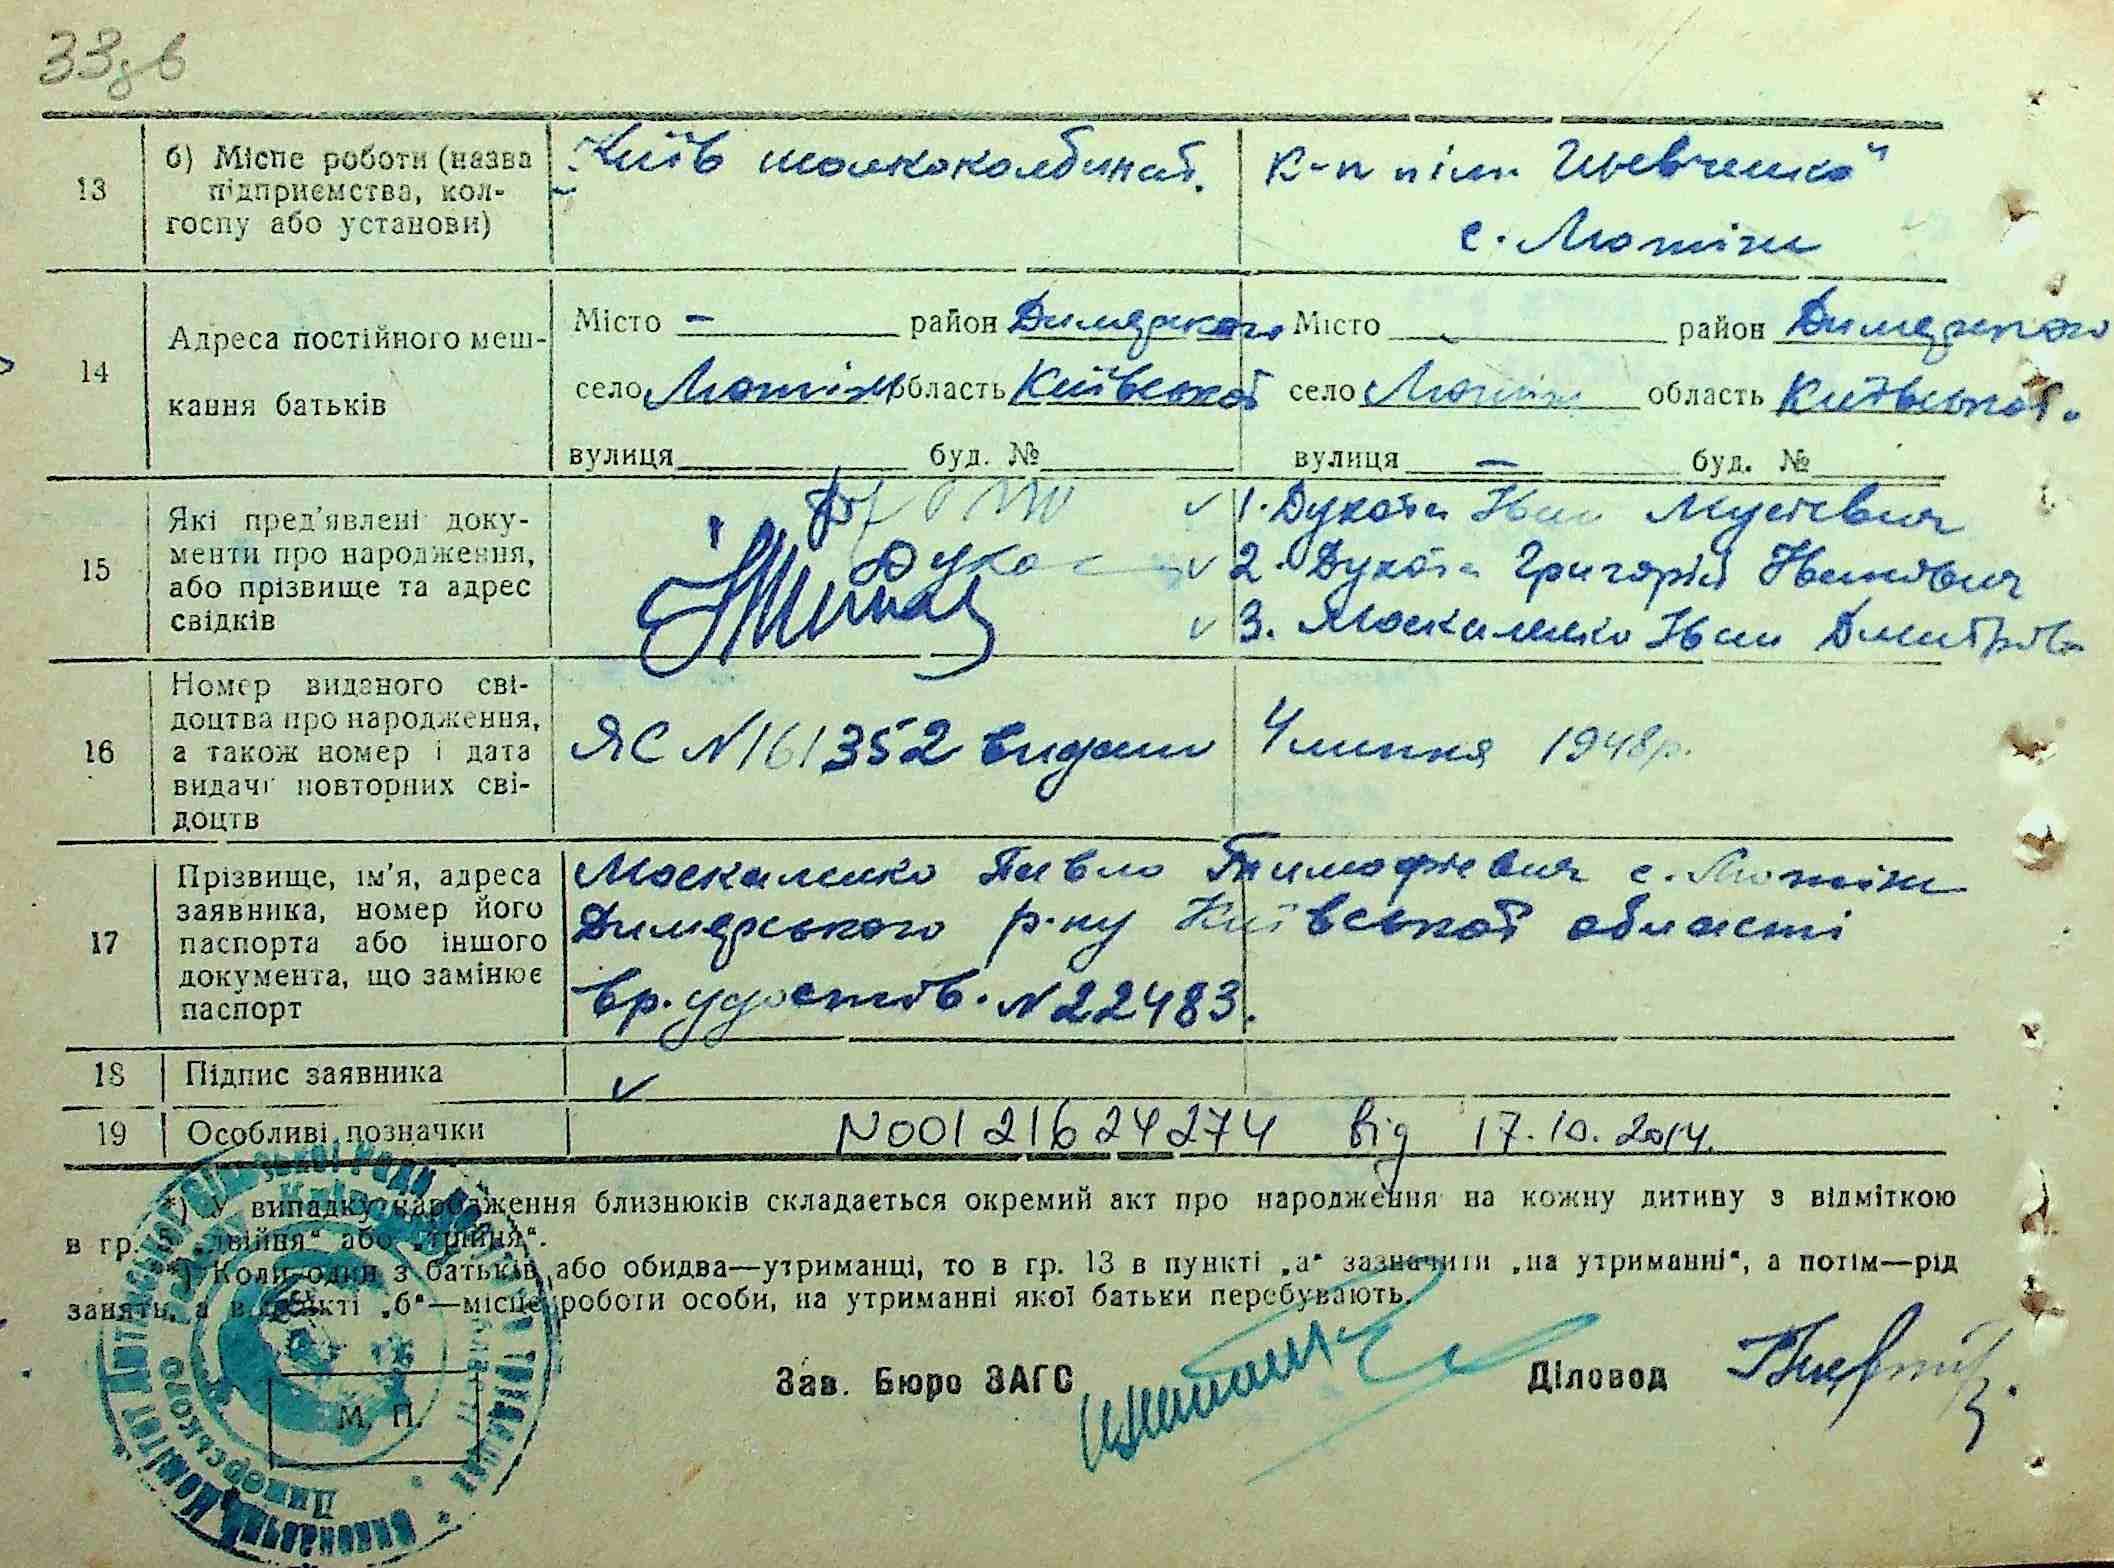 33зв
13
б) Місце роботи (назва
підприємства, кол-
госпу або установи)
Київ шовкокомбінат.
к-п ім. Шевченка"
с. Лютіж
14
Адреса постійного меш-
кання батьків
Місто – район Димерського
село Лютіж область Київської
вулиця буд. №
Місто район Димерського
село Лютіж область Київської.
вулиця – буд. №
15
Які пред'явлені доку-
менти про народження,
або прізвище та адрес
свідків
1. Дукача Іван Мусієвич
2. Дукача Григорій Іванович
3. Москаленко Іван Дмитров
16
Номер виданого сві-
доцтва про народження,
а також номер і дата
видачі повторних сві-
доцтв
ЯС N161352 видано 4 липня 1948р.
17
Прізвище, ім'я, адреса
заявника, номер його
паспорта або іншого
документа, що замінює
паспорт
Москаленко Павло Тимофієвич с. Лютіж
Димерського р-ну Київської області
вр. удостов. N22483.
18
Підпис заявника
19
Особливі позначки
N00121624274 від 17.10.2014.
*) У випадку народження близнюків складається окремий акт про народження на кожну дитину з відміткою
в гр. 5 „двійня“ або „трійня“.
**) Коли один з батьків або обидва—утриманці, то в гр. 13 в пункті „а“ зазначити „на утриманні“, а потім—рід
занять, а в пункті „б“—місце роботи особи, на утриманні якої батьки перебувають.
Зав. Бюро ЗАГС
Діловод
М. П.